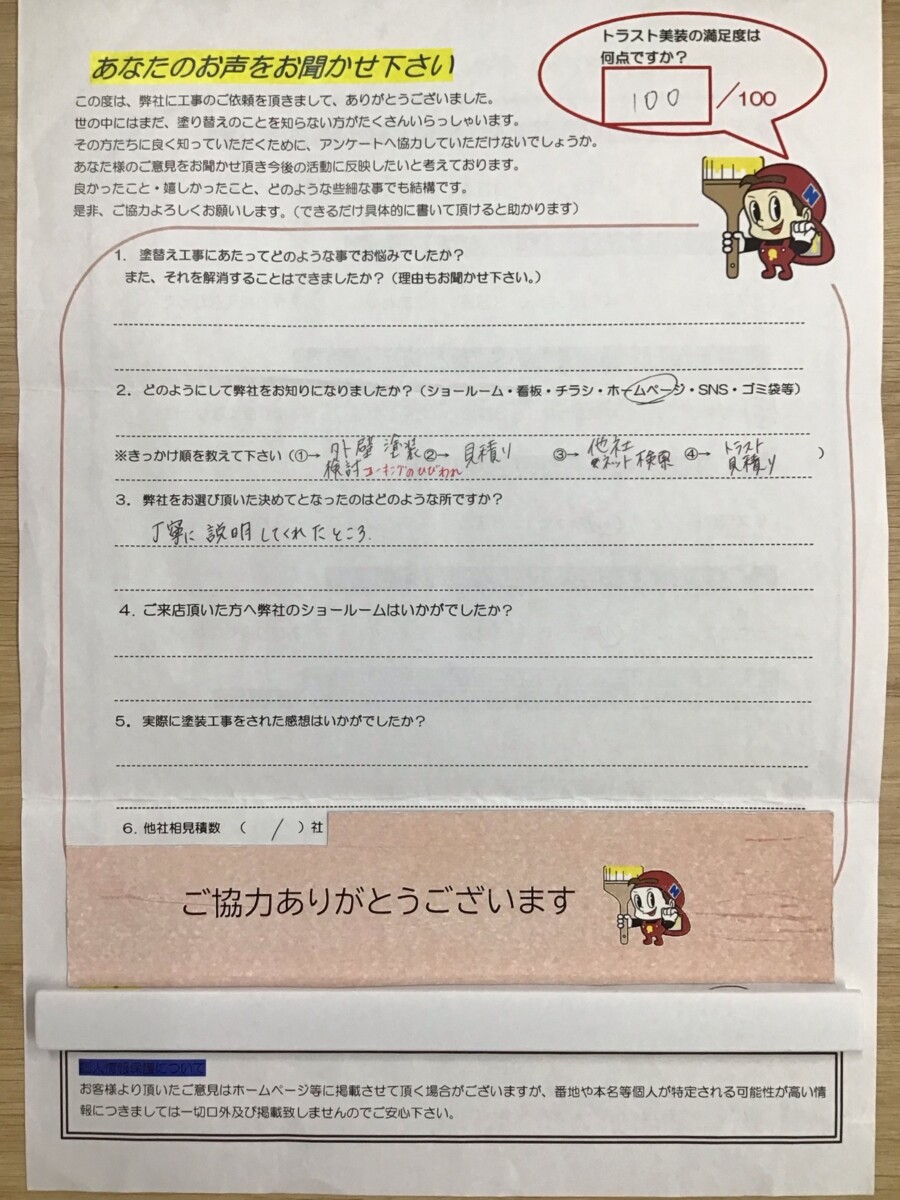 トラスト美装の満足度は
何点ですか？
100 ／100
あなたのお声をお聞かせ下さい
この度は、弊社に工事のご依頼を頂きまして、ありがとうございました。
世の中にはまだ、塗り替えのことを知らない方がたくさんいらっしゃいます。
その方たちに良く知っていただくために、アンケートへ協力していただけないでしょうか。
あなた様のご意見をお聞かせ頂き今後の活動に反映したいと考えております。
良かったこと・嬉しかったこと、どのような些細な事でも結構です。
是非、ご協力よろしくお願いします。（できるだけ具体的に書いて頂けると助かります）
1. 塗替え工事にあたってどのような事でお悩みでしたか？
また、それを解消することはできましたか？（理由もお聞かせ下さい。）
2. どのようにして弊社をお知りになりましたか？（ショールーム・看板・チラシ・ホームページ・SNS・ゴミ袋等）
※きっかけ順を教えて下さい（①→ 外壁塗装検討 コーキングのひびわれ ②→ 見積り ③→ 他社ネット検索 ④→ トラスト見積り ）
3. 弊社をお選び頂いた決めてとなったのはどのような所ですか？
丁寧に説明してくれたところ.
4. ご来店頂いた方へ弊社のショールームはいかがでしたか？
5. 実際に塗装工事をされた感想はいかがでしたか？
6. 他社相見積数 （ / ）社
ご協力ありがとうございます
個人情報保護について
お客様より頂いたご意見はホームページ等に掲載させて頂く場合がございますが、番地や本名等個人が特定される可能性が高い情
報につきましては一切口外及び掲載致しませんのでご安心下さい。